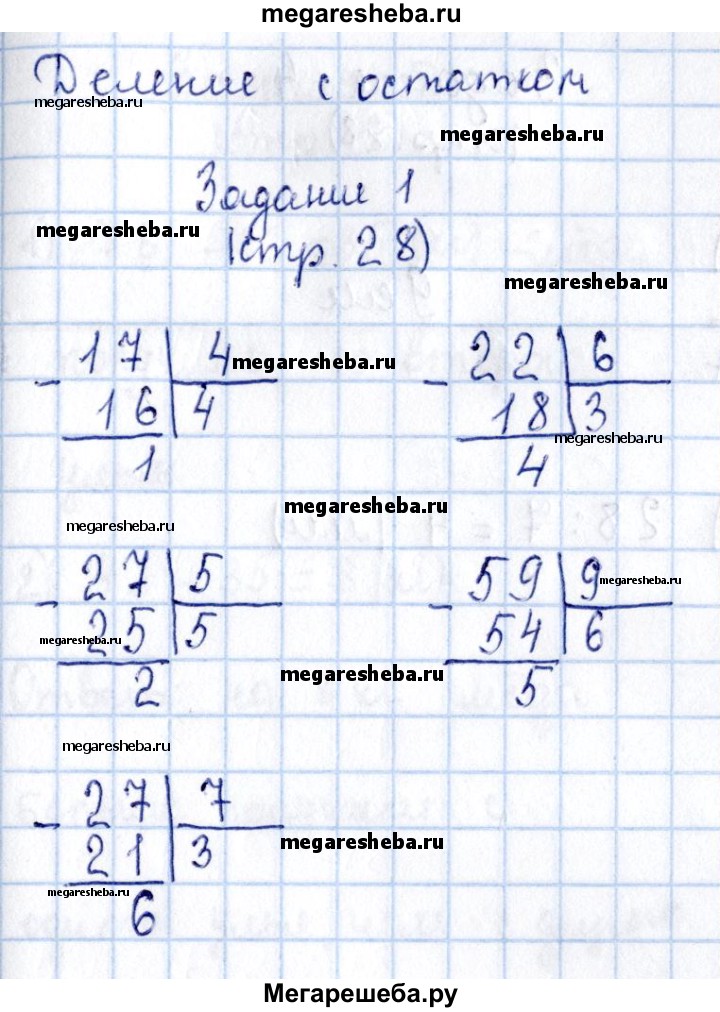 megaresheba.ru
Деление с остатком
megaresheba.ru
megaresheba.ru
Задание 1
megaresheba.ru
(стр. 28)
megaresheba.ru
17 4 22 6
megaresheba.ru
- 16 4 - 18 3
megaresheba.ru
1 4
megaresheba.ru
megaresheba.ru
27 5 59 9
megaresheba.ru
- 25 5 - 54 6
megaresheba.ru
2 5
megaresheba.ru
megaresheba.ru
27 7
- 21 3
megaresheba.ru
megaresheba.ru
6
Мегарешеба.ру